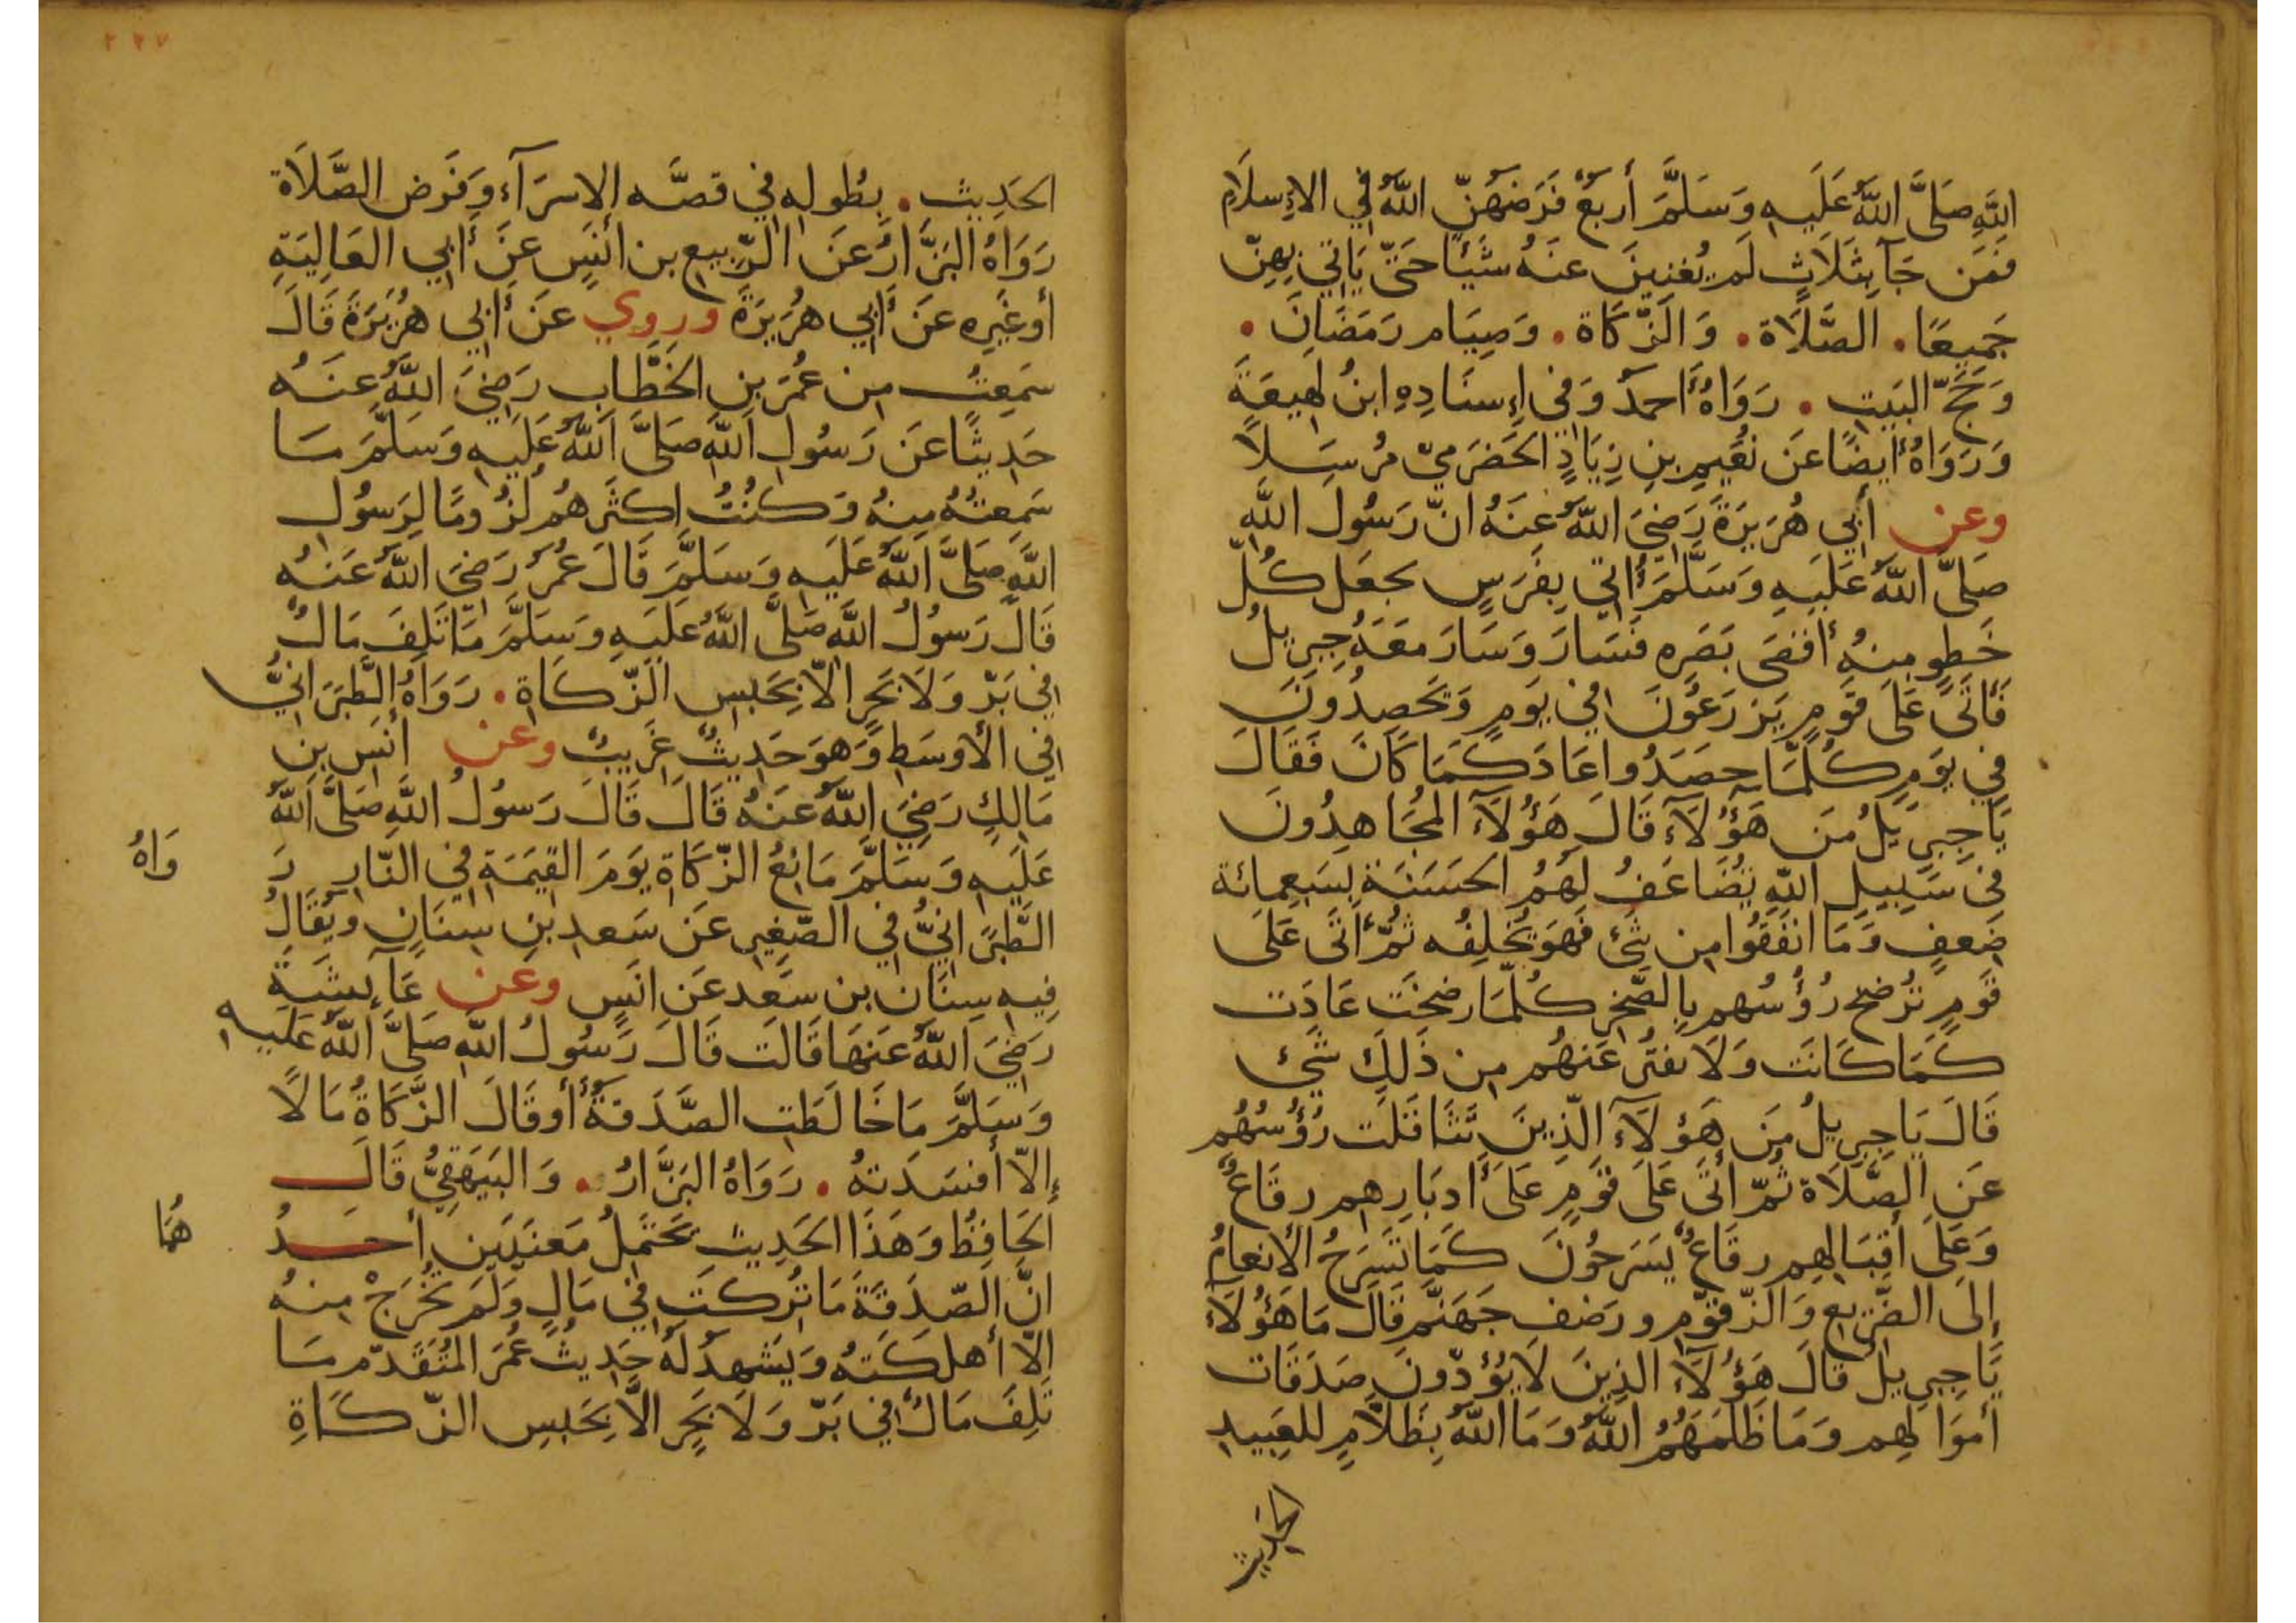 اللَّهِ صَلَّى اللَّهُ عَلَيهِ وَسَلَّمَ أربَعٌ فَرَضَهُنّ اللَّهُ فِي الإِسلَامِ
فَمَن جَآ بِثَلَاثٍ لَم يُغنِينَ عَنهُ شَيئًا حَتّى يَاتِي بِهِنّ
جَمِيعًا . الصَّلَاة . وَالزّكَاة . وَصِيَام رَمَضَانَ .
وَحَجّ البَيتِ . رَوَاهُ أَحمدُ وَفي إِسنَادِهِ ابنُ لَهِيعَةَ
وَرَوَاهُ أيضًا عَن نُعَيمِ بنِ زِيَادٍ الحَضرَميّ مُرسَلًا
وعن أَبي هُرَيرَةَ رَضِيَ اللَّهُ عَنهُ انّ رَسُولَ اللَّهِ
صَلَّى اللَّهُ عَلَيهِ وَسَلَّمَ أُتي بِفَرَسٍ يجعَل كُلّ
خَطوٍ مِنهُ أقصَى بَصَرِه فَسَارَ وَسَارَ مَعَهُ جِبرِيلُ
فَأتَى عَلَى قَومٍ يَزرَعُونَ فِي يَومٍ وَيَحصِدُونَ
فِي يَومٍ كُلّمَا حصَدُوا عَادَ كَمَا كَانَ فَقَالَ
يَا جِبرِيلُ مَن هَؤُلَآءِ قَالَ هَؤُلَآءِ المُجَاهِدُونَ
فى سَبِيلِ اللّهِ يُضَاعَفُ لَهُمُ الحَسَنَة بِسَبعِمائة
ضِعفٍ وَمَا انفَقُوا مِن شَئٍ فَهوَ يُخلِفُه ثُمّ أتَى عَلَى
قَومٍ تُرضَخ رُؤُسُهم بِالصّخرِ كُلّمَا رضخَت عَادَت
كَمَا كَانَت وَلَا يفتر عَنهُم مِن ذَلِكَ شَئ
قَالَ يَا جِبرِيلُ مَن هَؤُلَآءِ الّذِينَ تَثَاقَلَت رُؤُسُهُم
عَنِ الصّلَاة ثُمّ أتَى عَلَى قَومٍ عَلَى أدبَارِهِم رِقَاعٌ
وَعَلَى أقبَالِهِم رِقَاعٌ يَسرَحُونَ كَمَا تَسرَحُ الأنعَامُ
إلَى الضّرِيعِ وَالزّقّومِ وَرَضف جَهَنّمَ قَالَ مَا هَؤُلَآءِ
يَا جِبرِيلُ قَالَ هَؤُلَآءِ الذِينَ لَا يُؤَدّونَ صَدَقَات
أموَالِهِم وَمَا ظَلَمَهُمُ اللَّهُ وَمَا اللَّهُ بِظَلَّامٍ لِلعَبِيدِ
الحَدِيث
٢٢٧
الحَدِيث . بِطُولِهِ فِي قصَّه الاسرَآءِ وَفَرَض الصَّلَاة
رَوَاهُ البَزَّارُ عَن الرّبِيعِ بن أنَسٍ عَن أَبي العَالِيَةِ
أوغَيرِهِ عَن أَبي هُرَيرَةَ ورُوِي عَن أَبي هُرَيرَةَ قَالَ
سَمِعتُ مِن عُمَرَ بنِ الخَطَّابِ رَضِيَ اللَّهُ عَنهُ
حَدِيثًا عَن رَسُولِ اللَّهِ صَلَّى اللَّهُ عَلَيهِ وَسَلَّمَ مَا
سَمِعتُهُ مِنهُ وَكُنتُ اكثَرهُم لُزُومًا لِرَسُول
اللَّهِ صَلَّى اللَّهُ عَلَيهِ وَسَلَّمَ قَالَ عُمَرُ رَضِيَ اللَّهُ عَنهُ
قَالَ رَسُولُ اللَّهِ صَلَّى اللَّهُ عَلَيهِ وَسَلَّمَ مَا تَلِفَ مَالٌ
فِي بَرّ وَلَا بَحرٍ الاّ بِحَبسِ الزّكَاةِ . رَوَاهُ الطَّبَرَانِيُّ
فِي الأوسَطِ وَهوَ حَدِيثٌ غَرِيبٌ وعن أنَس بنِ
مَالِكٍ رَضِيَ اللَّهُ عَنهُ قَالَ قَالَ رَسُولُ اللَّهِ صَلَّى اللَّهُ
عَلَيهِ وَسَلَّمَ مَانِعُ الزّكَاةِ يَومَ القِيمَةِ فِي النّارِ رَ
وَاهُ
الطَّبَرَانِيُّ فِي الصّغِير عَن سَعدِ بنِ سِنَانٍ ويُقَالُ
فِيه سِنَان بن سَعِد عَن انَسٍ وعن عَآئِشَةَ
رَضِيَ اللَّهُ عَنهَا قَالَت قَالَ رَسُولُ اللَّهِ صَلَّى اللَّهُ عَلَيهِ
وَسَلَّمَ مَا خَالَطَتِ الصَّدَقَةُ أَوقَالَ الزَّكَاةُ مَالًا
إلاّ أفسَدَتهُ . رَوَاهُ البَزَّارُ . وَالبَيهَقِيُّ قَالَ
الحَافِظُ وَهَذَا الحَدِيث يَحتَمِلُ مَعنَيَين أحَدُ
هُمَا
انَّ الصّدَقَةَ مَا تُرِكَت فِي مَالٍ وَلَم تُخرَجْ مِنهُ
الاّ أهلَكَتهُ وَيَشهدُ لَهُ حَدِيثُ عُمَرَ المُتَقَدّم مَا
تَلِفَ مَالٌ فِي بَرّ وَلَا بَحرٍ الاَّ بِحَبسِ الزّكَاةِ